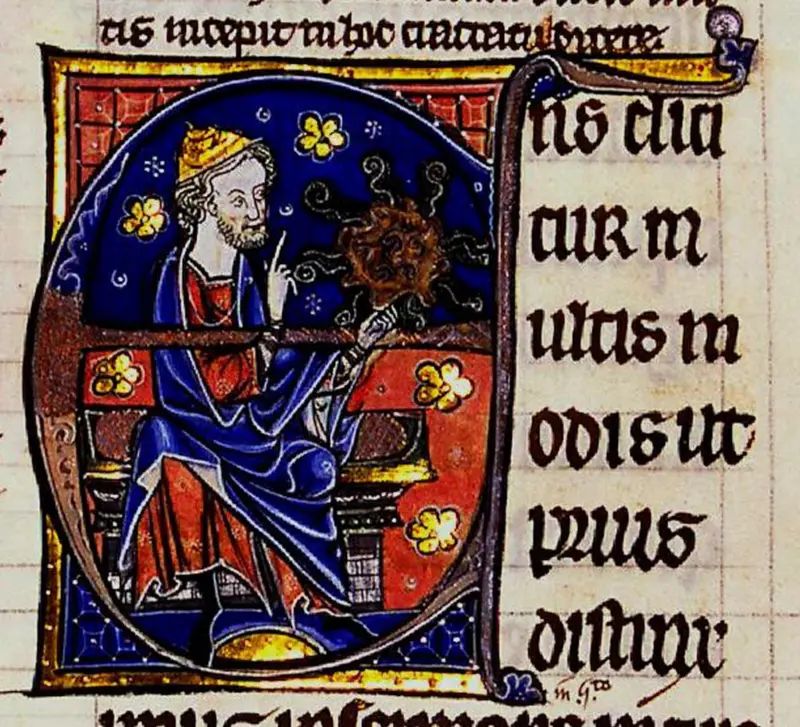 tis incepit in hoc tractatu dicere.
Ens dici
tur m
ultis m
odis ut
prius
distinx
imus in